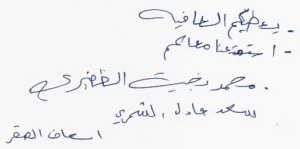 يعطيكم العافيه
- استمتعنا معاكم
- محمد بخيت الظفيري
سعد عادل الشمري
اسعاف الصقر